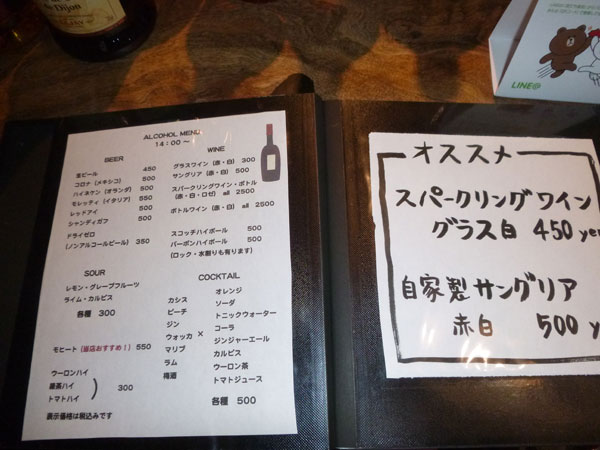 de Dijon
LINE@
ALCOHOL MENU
14:00～
BEER
生ビール 450
コロナ (メキシコ) 500
ハイネケン (オランダ) 500
モレッティ (イタリア) 550
レッドアイ 500
シャンディガフ 500
ドライゼロ
(ノンアルコールビール) 350
WINE
グラスワイン (赤・白) 300
サングリア (赤・白) 500
スパークリングワイン・ボトル
(赤・白・ロゼ) all 2500
ボトルワイン (赤・白) all 2500
スコッチハイボール 500
バーボンハイボール 500
(ロック・水割りも有ります)
SOUR
レモン・グレープフルーツ
ライム・カルピス
各種 300
モヒート (当店おすすめ！) 550
ウーロンハイ
緑茶ハイ
トマトハイ
) 300
表示価格は税込みです
COCKTAIL
カシス
ピーチ
ジン
ウォッカ
マリブ
ラム
梅酒
×
オレンジ
ソーダ
トニックウォーター
コーラ
ジンジャーエール
カルピス
ウーロン茶
トマトジュース
各種 500
オススメ
スパークリングワイン
グラス白 450 yen
自家製サングリア
赤白 500 y